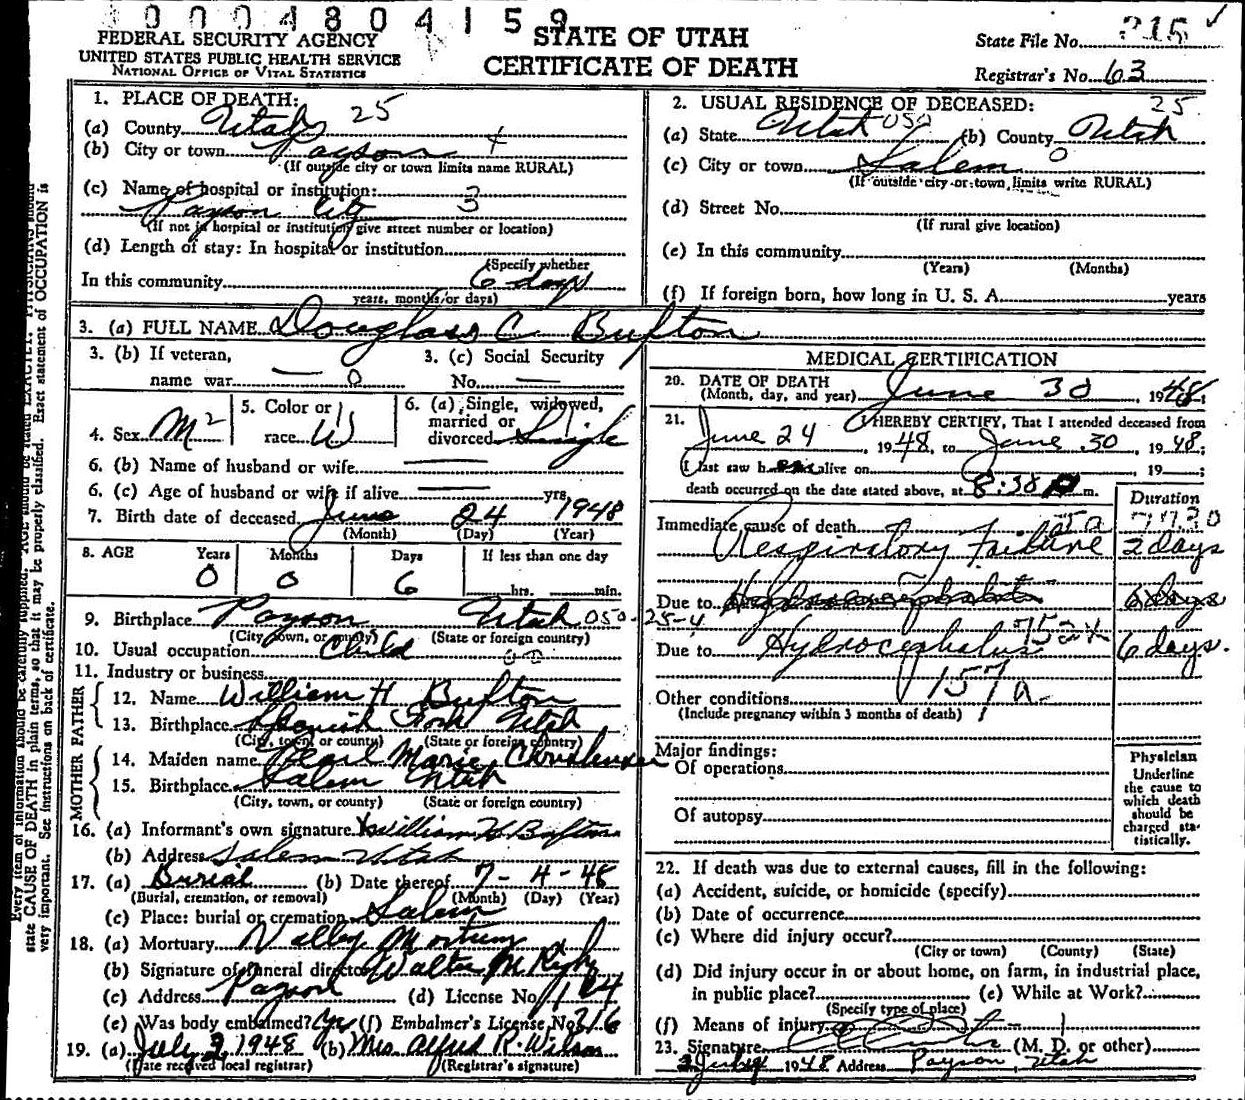 0004804159
FEDERAL SECURITY AGENCY
UNITED STATES PUBLIC HEALTH SERVICE
NATIONAL OFFICE OF VITAL STATISTICS
STATE OF UTAH
CERTIFICATE OF DEATH
State File No. 215
Registrar's No. 63
1. PLACE OF DEATH:
(a) County Utah 25
(b) City or town Payson 4
(If outside city or town limits name RURAL)
(c) Name of hospital or institution: 3
Payson City
(If not in hospital or institution give street number or location)
(d) Length of stay: In hospital or institution
(Specify whether
In this community 6 days
years, months or days)
2. USUAL RESIDENCE OF DECEASED: 25
(a) State Utah 050 (b) County Utah
(c) City or town Salem 0
(If outside city or town limits write RURAL)
(d) Street No.
(If rural give location)
(e) In this community
(Years) (Months)
(f) If foreign born, how long in U. S. A. years
3. (a) FULL NAME Douglass C Bufton
3. (b) If veteran, name war — 0
3. (c) Social Security No. —
4. Sex M 2
5. Color or race W
6. (a) Single, widowed, married or divorced Single
6. (b) Name of husband or wife —
6. (c) Age of husband or wife if alive — yrs.
7. Birth date of deceased June 24 1948
(Month) (Day) (Year)
8. AGE Years Months Days If less than one day
0 0 6 hrs. min.
9. Birthplace Payson Utah 050-25-4
(City, town, or county) (State or foreign country)
10. Usual occupation Child
11. Industry or business
FATHER
12. Name William H Bufton
13. Birthplace Spanish Fork Utah
(City, town or county) (State or foreign country)
MOTHER
14. Maiden name Pearl Marie
15. Birthplace Salem Utah
(City, town, or county) (State or foreign country)
16. (a) Informant's own signature x William H Bufton
(b) Address Salem Utah
17. (a) Burial (b) Date thereof 7-4-48
(Burial, cremation, or removal) (Month) (Day) (Year)
(c) Place: burial or cremation Salem
18. (a) Mortuary Valley Mortuary
(b) Signature of funeral director Walter M Rigby
(c) Address Payson (d) License No. 104
(e) Was body embalmed? yes (f) Embalmer's License No. 316
19. (a) July 2 1948 (b) Mrs Alfred R. Wilson
(Date received local registrar) (Registrar's signature)
MEDICAL CERTIFICATION
20. DATE OF DEATH
(Month, day, and year) June 30, 1948;
21. I HEREBY CERTIFY, That I attended deceased from
June 24, 1948, to June 30, 1948;
I last saw h alive on , 19 ;
death occurred on the date stated above, at 8:38 P m.
Duration
7730
Immediate cause of death
Respiratory Failure 2 days
Due to 6 days
Due to Hydrocephalus 752 6 days.
157a
Other conditions
(Include pregnancy within 3 months of death)
Major findings:
Of operations
Of autopsy
Physician
Underline
the cause to
which death
should be
charged sta-
tistically.
22. If death was due to external causes, fill in the following:
(a) Accident, suicide, or homicide (specify)
(b) Date of occurrence
(c) Where did injury occur?
(City or town) (County) (State)
(d) Did injury occur in or about home, on farm, in industrial place,
in public place? (e) While at Work?
(Specify type of place)
(f) Means of injury
23. Signature (M. D. or other)
July 1948 Address Payson, Utah
state CAUSE OF DEATH in plain terms, so that it may be properly classified. Exact statement of OCCUPATION is
very important. See instructions on back of certificate.